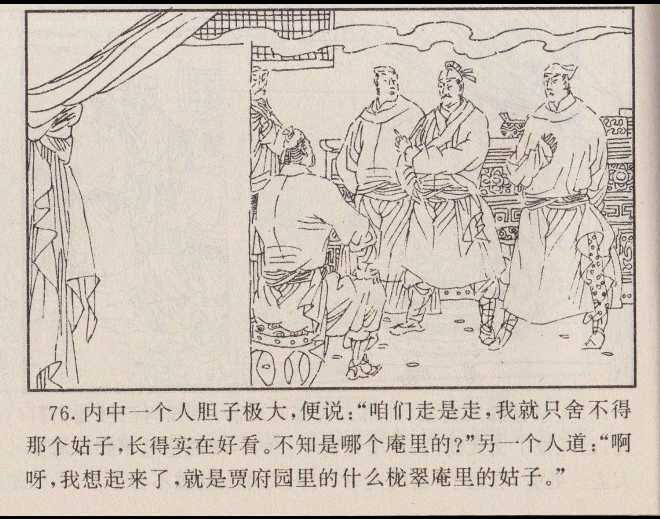 76. 内中一个人胆子极大,便说:“咱们走是走,我就只舍不得
那个姑子,长得实在好看。不知是哪个庵里的?”另一个人道:“啊
呀,我想起来了,就是贾府园里的什么栊翠庵里的姑子。”